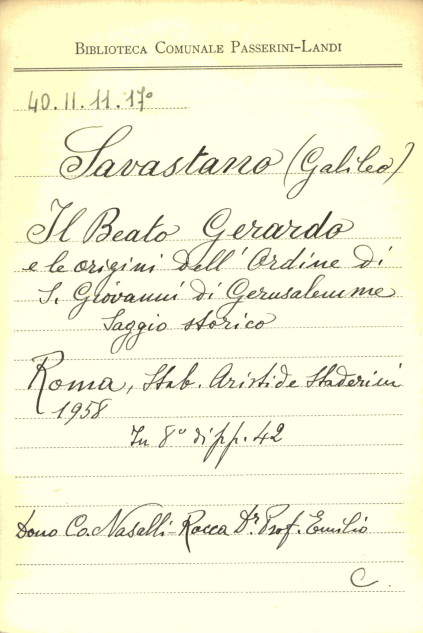 BIBLIOTECA COMUNALE PASSERINI-LANDI
40.II.11.17°
Savastano (Galileo)
Il Beato Gerardo
e le origini dell'Ordine di
S. Giovanni di Gerusalemme
Saggio storico
Roma, Stab. Aristide Staderini
1958
In 8° di pp. 42
Dono Co. Nasalli-Rocca Dr. Prof. Emilio
C.